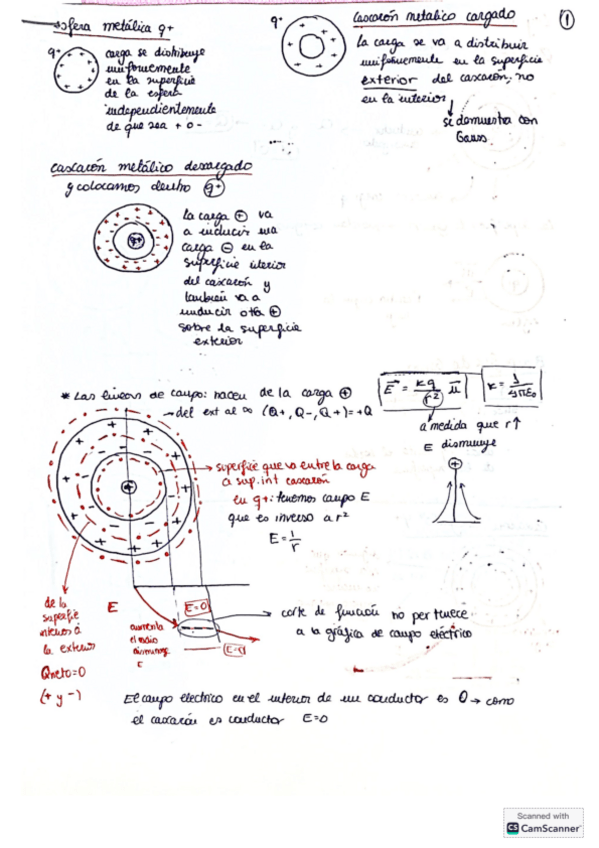 → esfera metálica q+
q+
carga se distribuye
uniformemente
en la superficie
de la esfera
independientemente
de que sea + o -
q+
Cascarón metalico cargado
①
La carga se va a distribuir
uniformemente en la superficie
exterior del cascarón, no
en la interior
se demuestra con
Gauss
cascarón metálico descargado
y colocamos dentro q+
q+
la carga ⊕ va
a inducir una
carga ⊖ en la
superficie interior
del cascarón y
también va a
inducir otra ⊕
sobre la superficie
exterior
* Las lineas de campo: nacen de la carga ⊕
→ del ext al ∞ (Q+, Q-, Q+) = +Q
E = kq/r² u
k = 1/4πε₀
a medida que r↑
E disminuye
→ superficie que va entre la carga
a sup. int cascarón
en q+: tenemos campo E
que es inverso a r²
E = 1/r
de la
superficie
interior a
la exterior
Qneto=0
(+ y -)
E
E=0
aumenta
el radio
disminuye
E
→ corte de función no pertenece
a la gráfica de campo eléctrico
El campo electrico en el interior de un conductor es 0 → como
el cascarón es conductor E=0
Scanned with
CS CamScanner